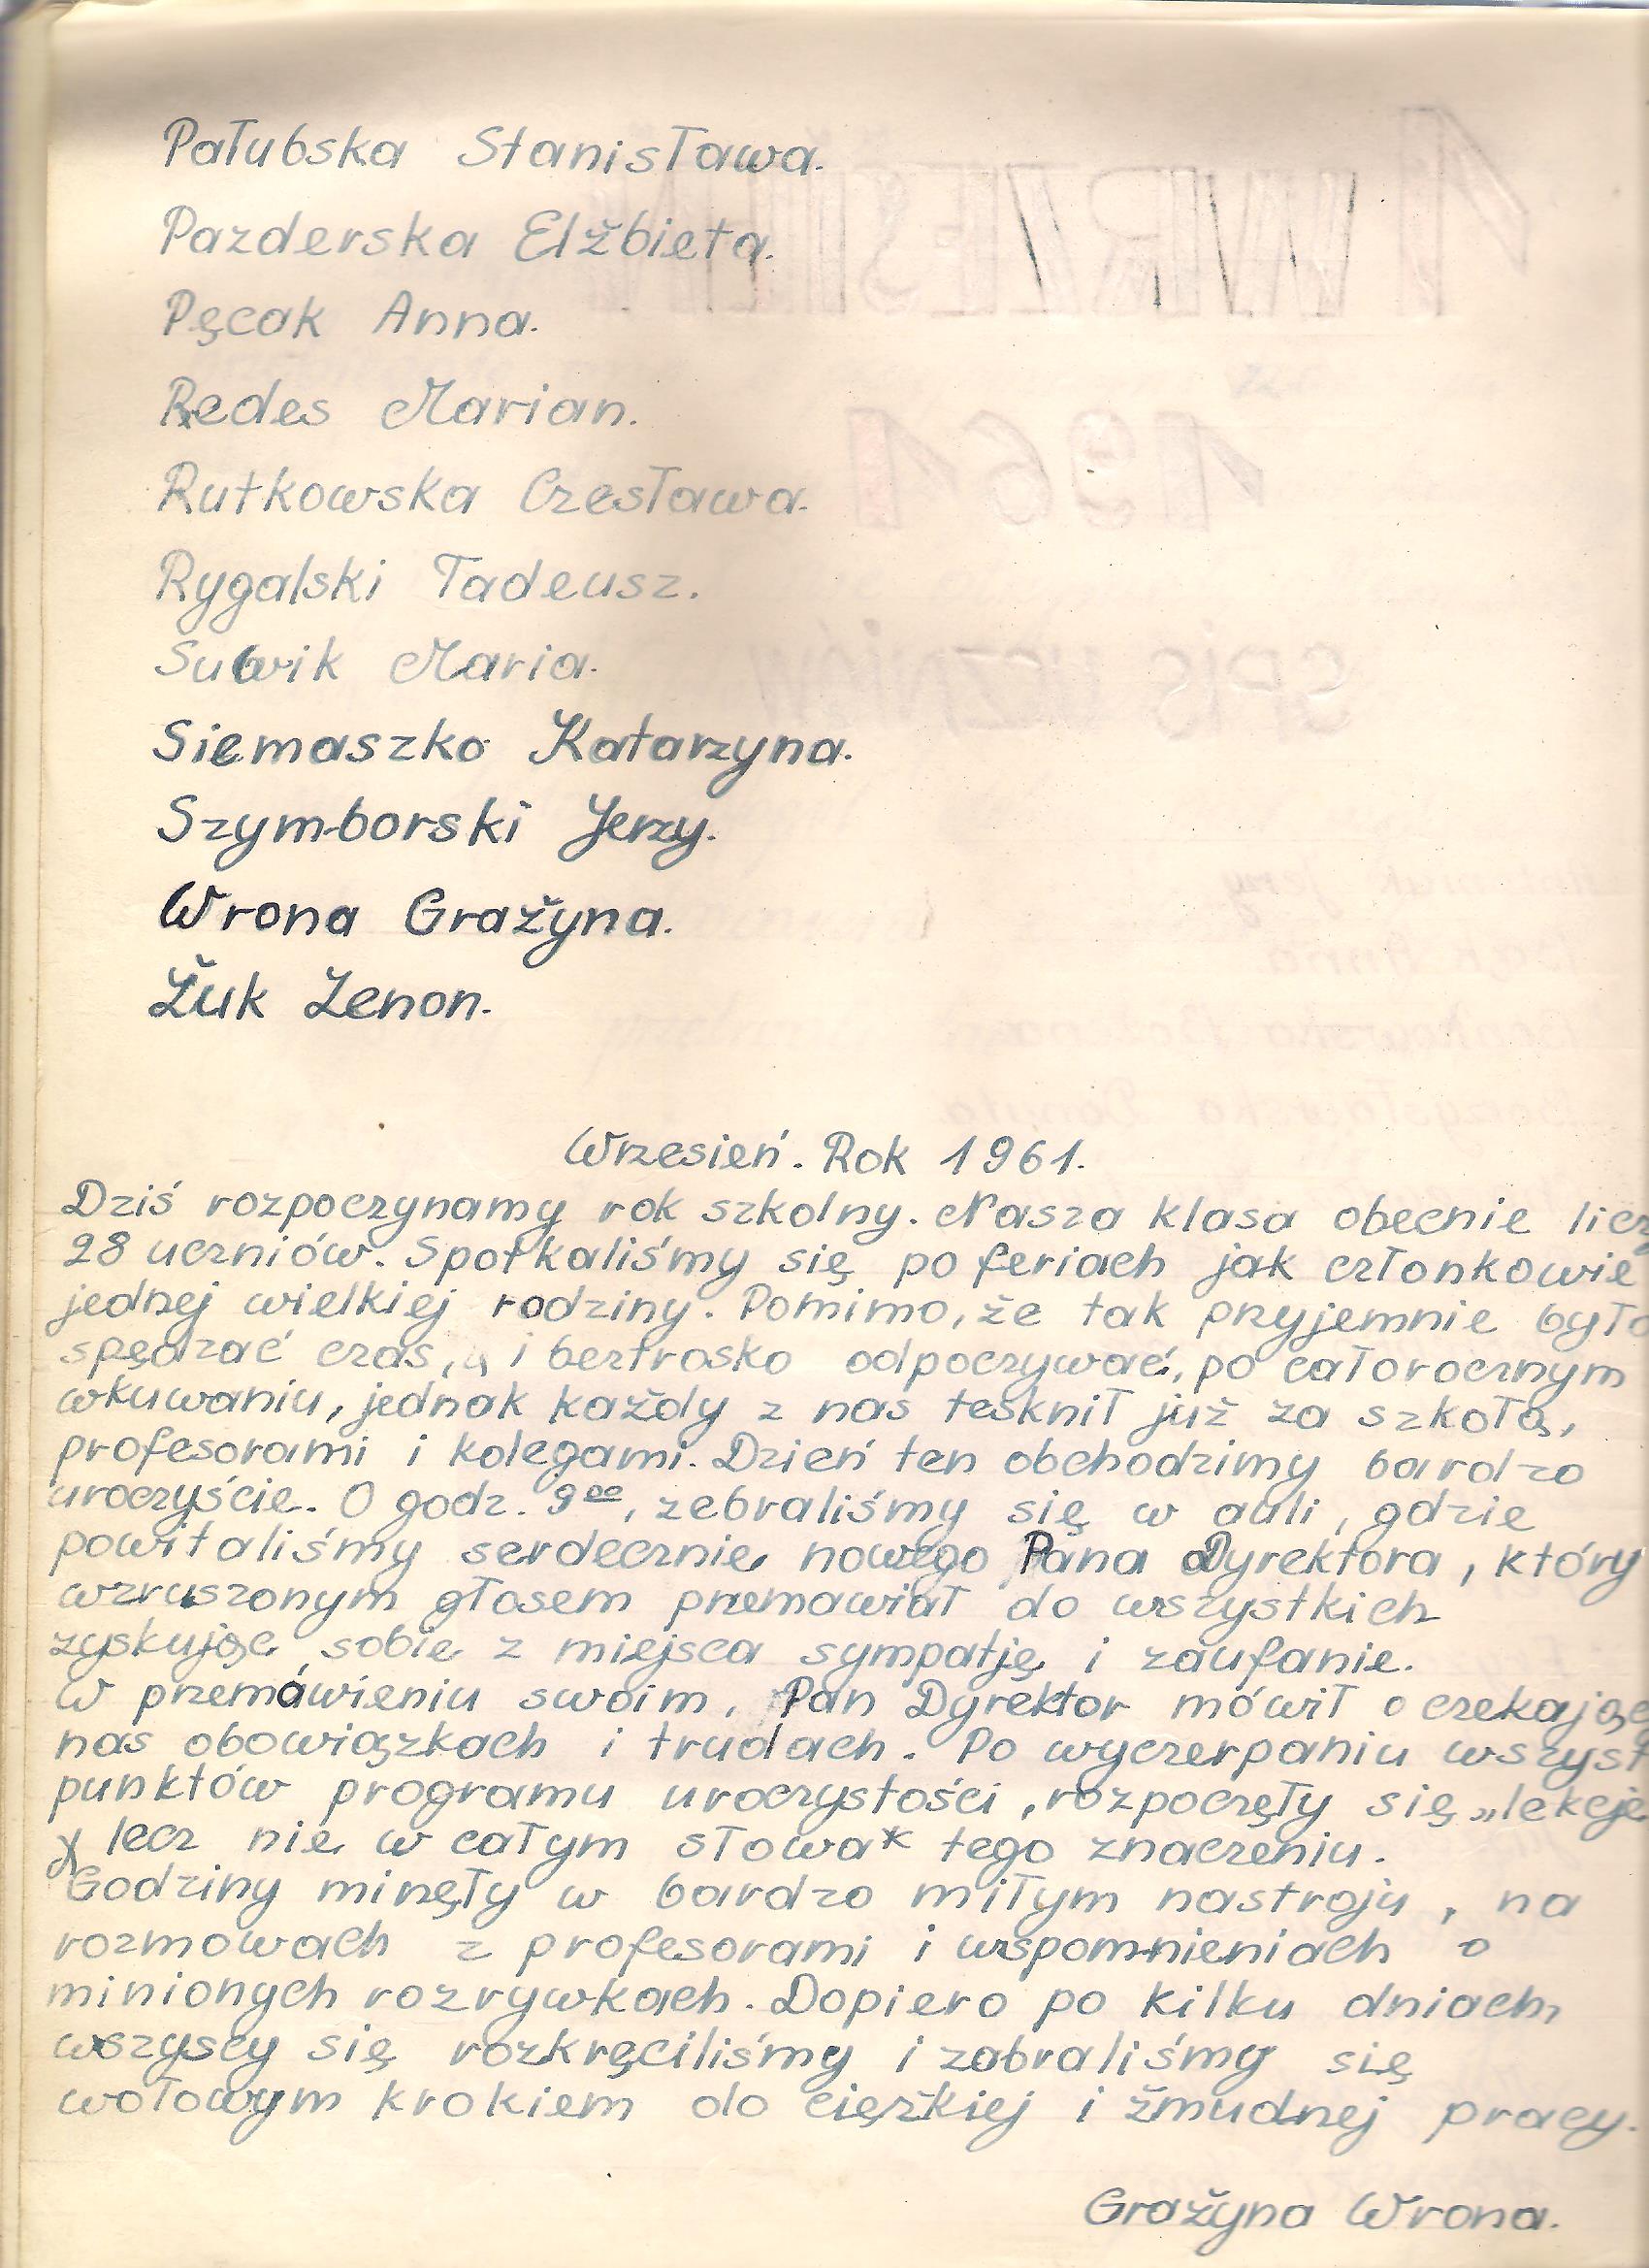 Pałubska Stanisława.
Pazderska Elżbieta.
Pęcak Anna.
Redes Marian.
Rutkowska Czesława.
Rygalski Tadeusz.
Suwik Maria.
Siemaszko Katarzyna.
Szymborski Jerzy.
Wrona Grażyna.
Żuk Zenon.
Wrzesień. Rok 1961.
Dziś rozpoczynamy rok szkolny. Nasza klasa obecnie licz
28 uczniów. Spotkaliśmy się po feriach jak członkowie
jednej wielkiej rodziny. Pomimo, że tak przyjemnie było
spędzać czas, i beztrosko odpoczywać, po całorocznym
wkuwaniu, jednak każdy z nas tesknił już za szkołą,
profesorami i kolegami. Dzień ten obchodzimy bardzo
uroczyście. O godz. 9⁰⁰, zebraliśmy się w auli, gdzie
powitaliśmy serdecznie nowego Pana Dyrektora, który
wzruszonym głosem przemawiał do wszystkich
zyskując sobie z miejsca sympatję i zaufanie.
W przemówieniu swoim, Pan Dyrektor mówił o czekając
nas obowiązkach i trudach. Po wyczerpaniu wszyst
punktów programu uroczystości, rozpoczęły się „lekcje
lecz nie w całym słowa* tego znaczeniu.
Godziny minęły w bardzo miłym nastroju, na
rozmowach z profesorami i wspomnieniach o
minionych rozrywkach. Dopiero po kilku dniach,
wszyscy się rozkręciliśmy i zabraliśmy się
wołowym krokiem do ciężkiej i żmudnej pracy.
Grażyna Wrona.